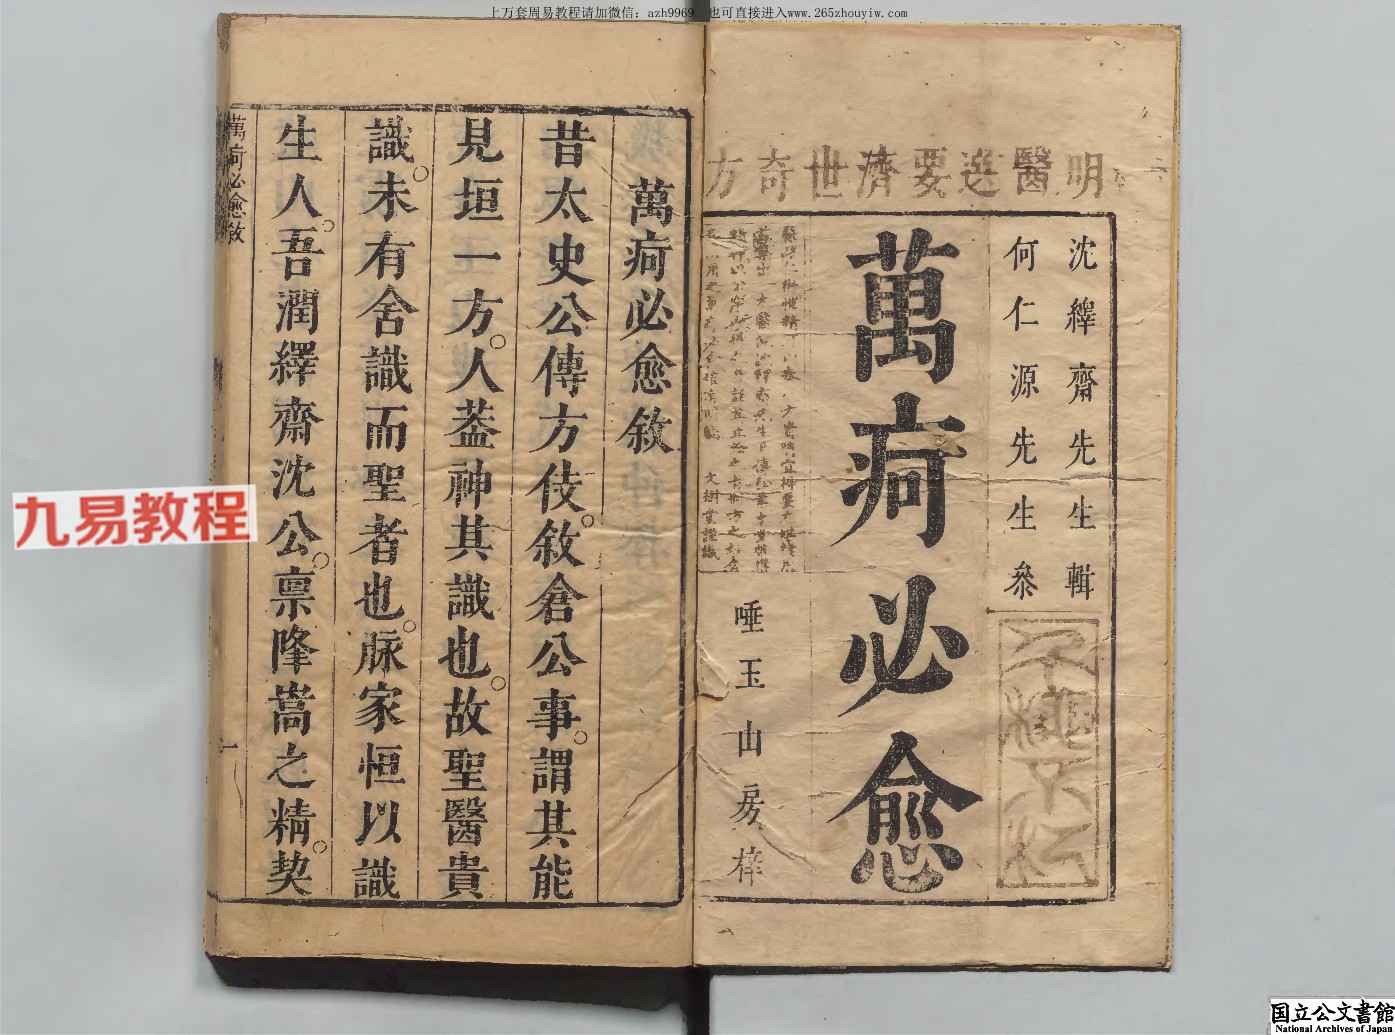 上万套周易教程请加微信：azh9969，也可直接进入www.265zhouyiw.com
明醫選要濟世奇方
沈繹齋先生輯
何仁源先生叅
萬疴必愈
唾玉山房梓
萬疴必愈敘
昔太史公傳方伎。敘倉公事。謂其能
見垣一方。人葢神其識也。故聖醫貴
識。未有舍識而聖者也。脉家恒以識
生人。吾潤繹齋沈公。禀隆嵩之精。契
萬疴必愈敘
一
九易教程
国立公文書館
National Archives of Japan